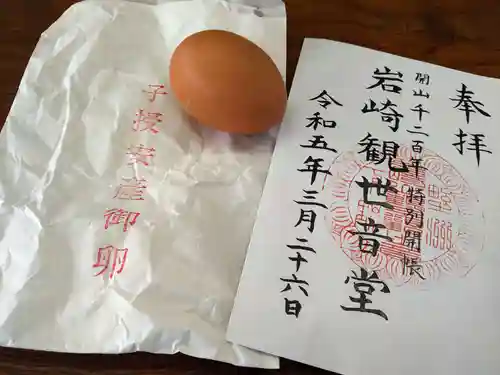 子授安産御卵
奉拝
開山千二百年特別開帳
岩崎観世音堂
令和五年三月二十六日